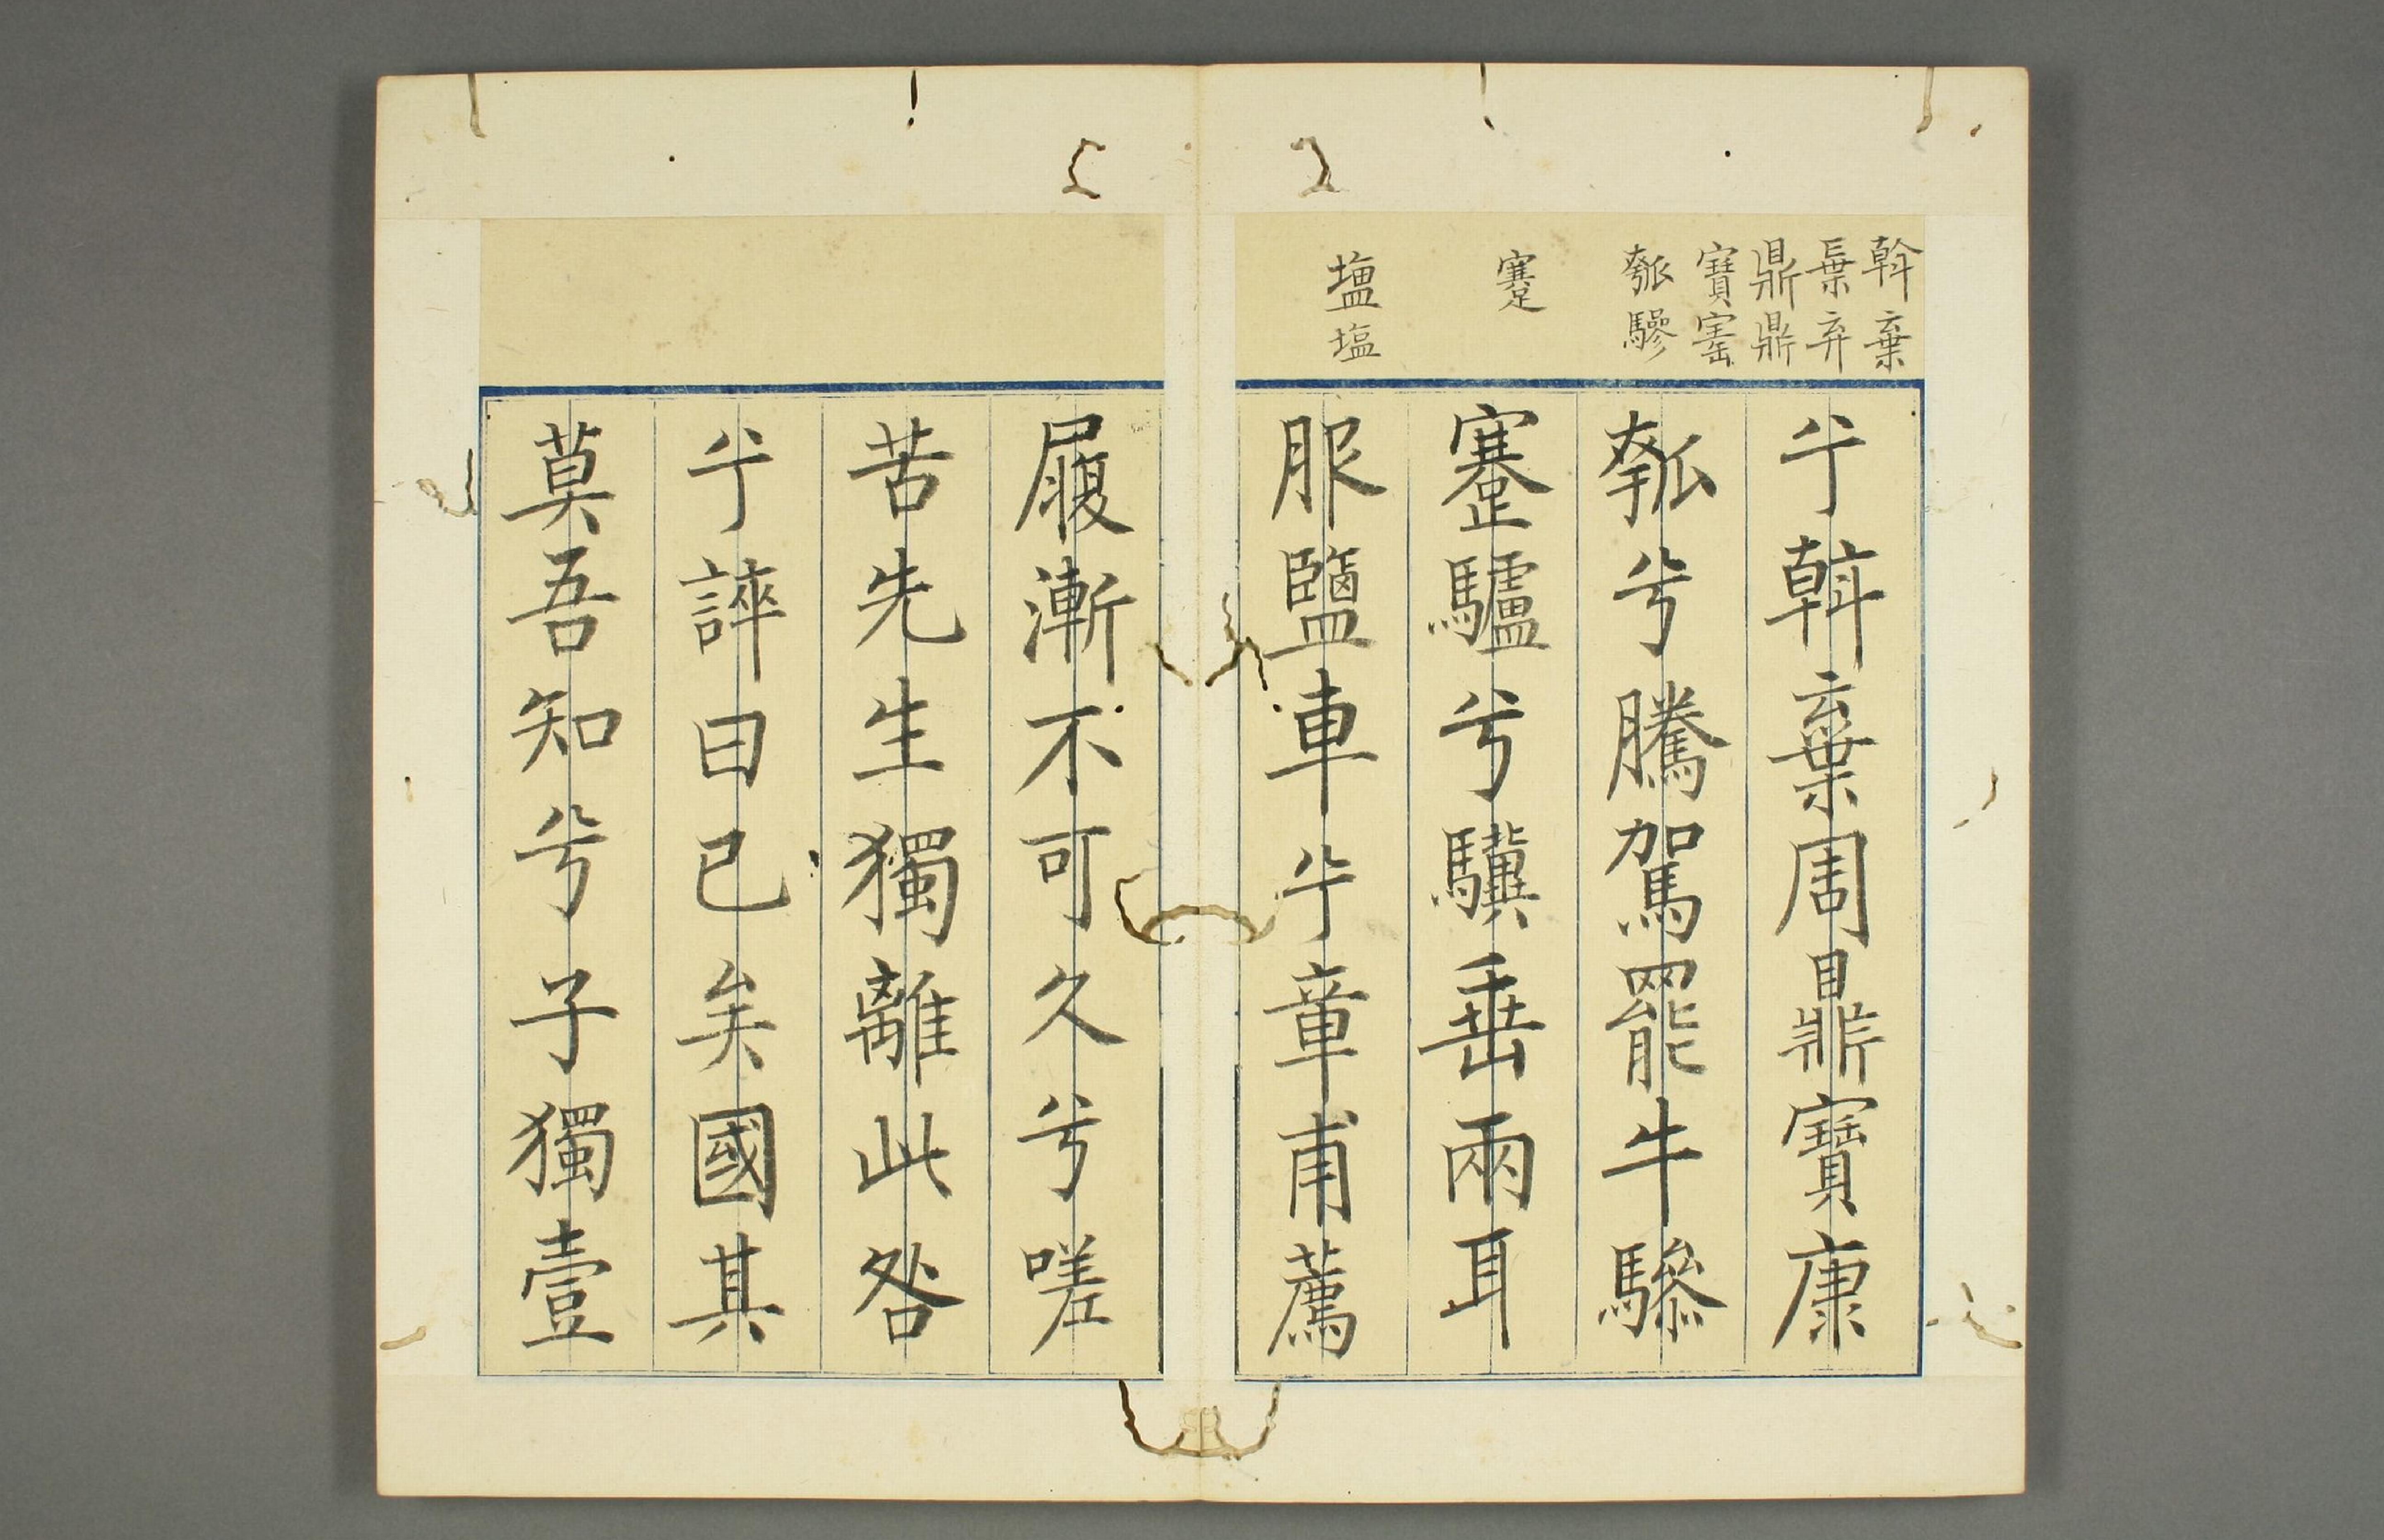 斡棄
弃
鼎鼎
寶
瓠驂
蹇
塩
兮斡棄周鼎寶康
瓠兮騰駕罷牛驂
蹇驢兮驥垂兩耳
服鹽車兮章甫薦
履漸不可久兮嗟
苦先生獨離此咎
兮誶曰已矣國其
莫吾知兮子獨壹